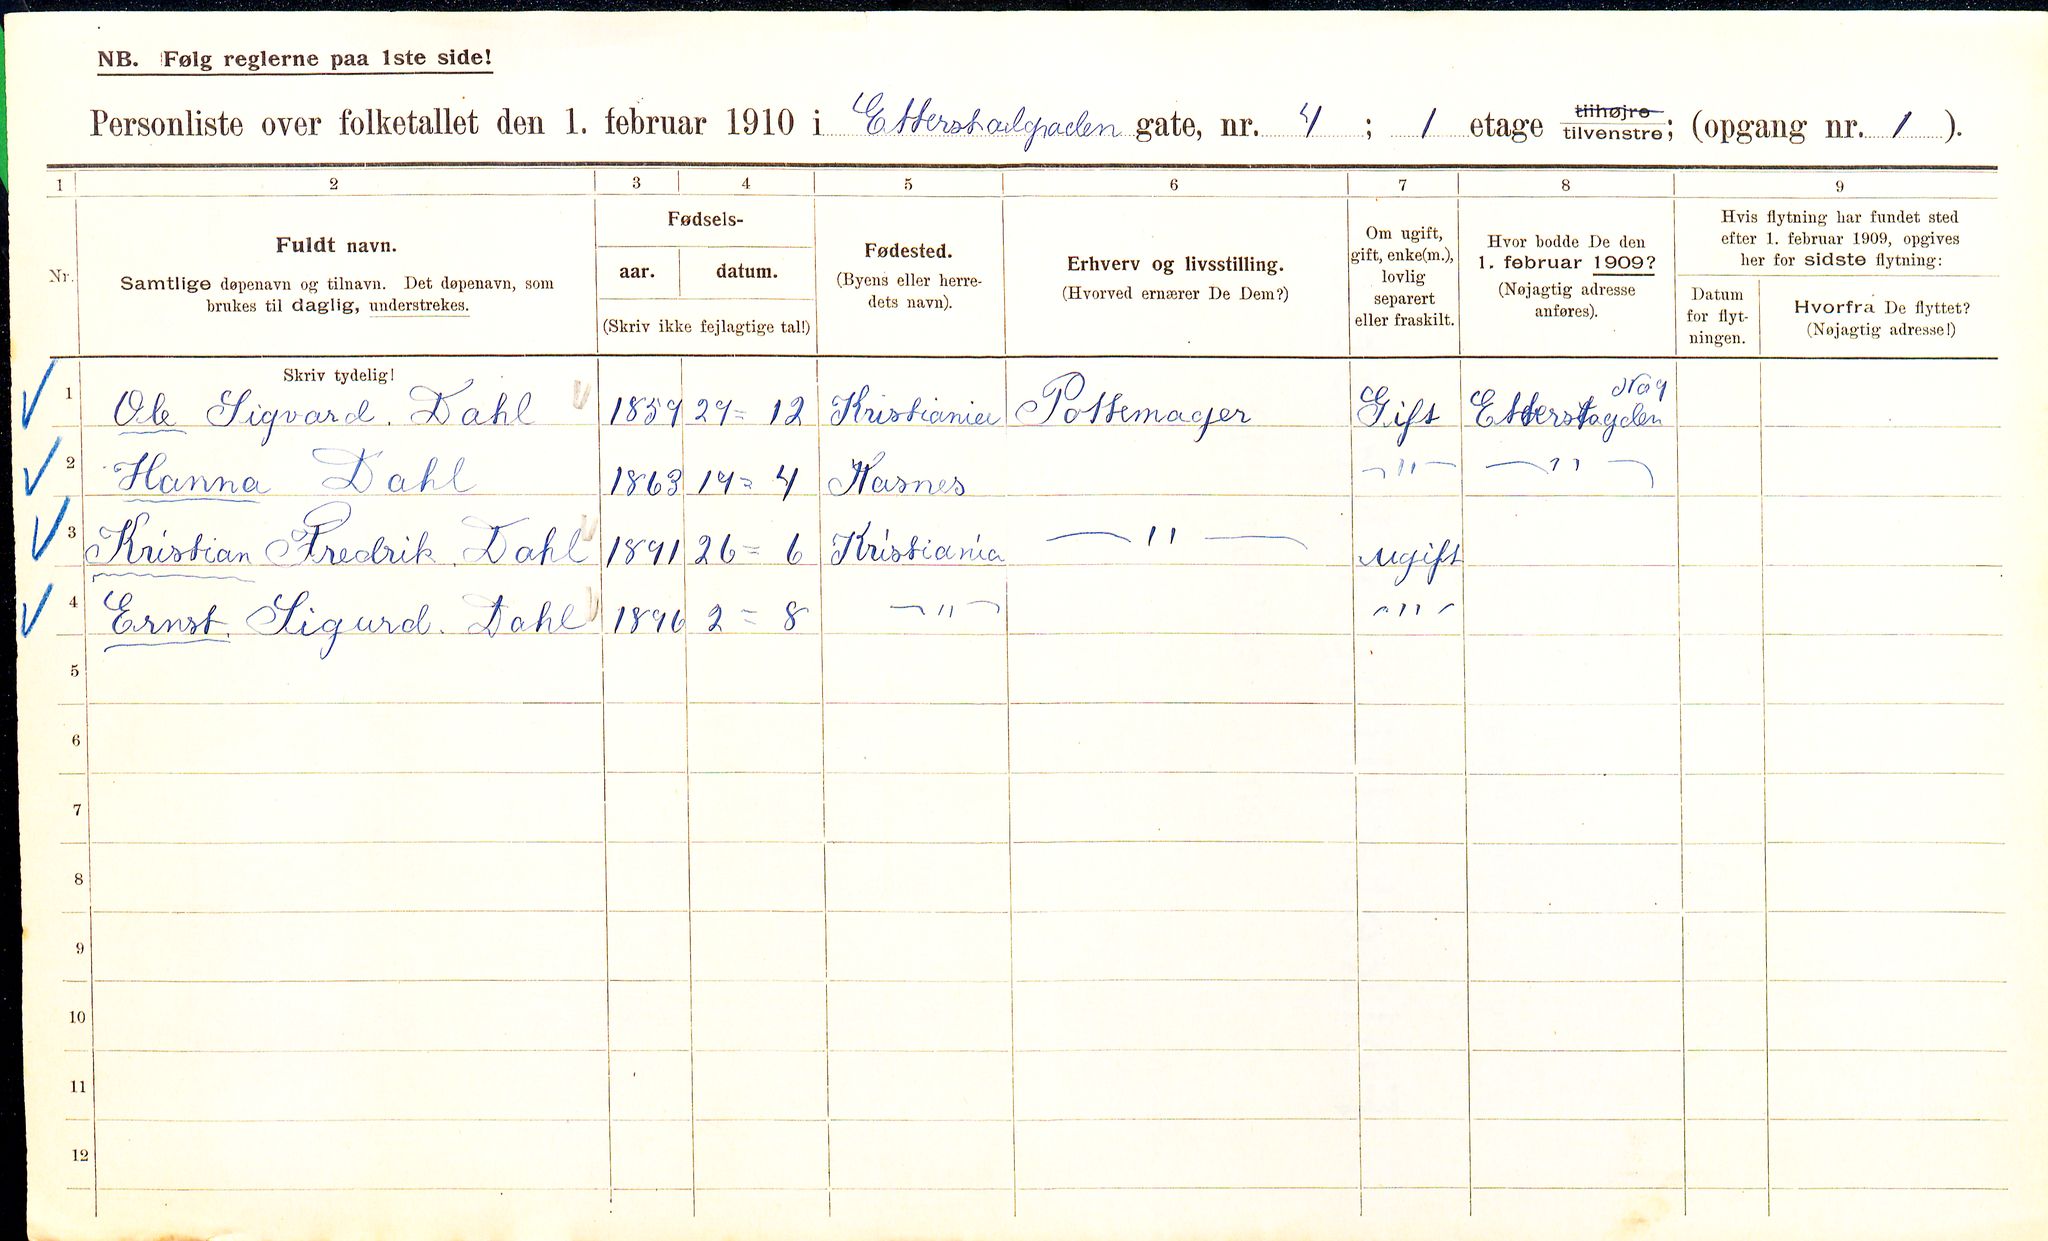 NB. Følg reglerne paa 1ste side!
Personliste over folketallet den 1. februar 1910 i Etterstadgaden gate, nr. 4 ; 1 etage tilhøjre tilvenstre; (opgang nr. 1 ).
1 2 3 4 5 6 7 8 9
Nr.
Fuldt navn.
Samtlige døpenavn og tilnavn. Det døpenavn, som
brukes til daglig, understrekes.
Fødsels-
aar. datum.
(Skriv ikke fejlagtige tal!)
Fødested.
(Byens eller herre-
dets navn).
Erhverv og livsstilling.
(Hvorved ernærer De Dem?)
Om ugift,
gift, enke(m.),
lovlig
separert
eller fraskilt.
Hvor bodde De den
1. februar 1909?
(Nøjagtig adresse
anføres).
Hvis flytning har fundet sted
efter 1. februar 1909, opgives
her for sidste flytning:
Datum
for flyt-
ningen.
Hvorfra De flyttet?
(Nøjagtig adresse!)
Skriv tydelig!
1 Ole Sigvard. Dahl 1859 29 = 12 Kristiania Pottemager Gift Etterstagden
2 Hanna Dahl 1863 19 = 4 —"— —"—
3 Kristian Fredrik. Dahl 1891 26 = 6 Kristiania —"— ugift
4 Ernst. Sigurd. Dahl 1896 2 = 8 —"— —"—
5
6
7
8
9
10
11
12